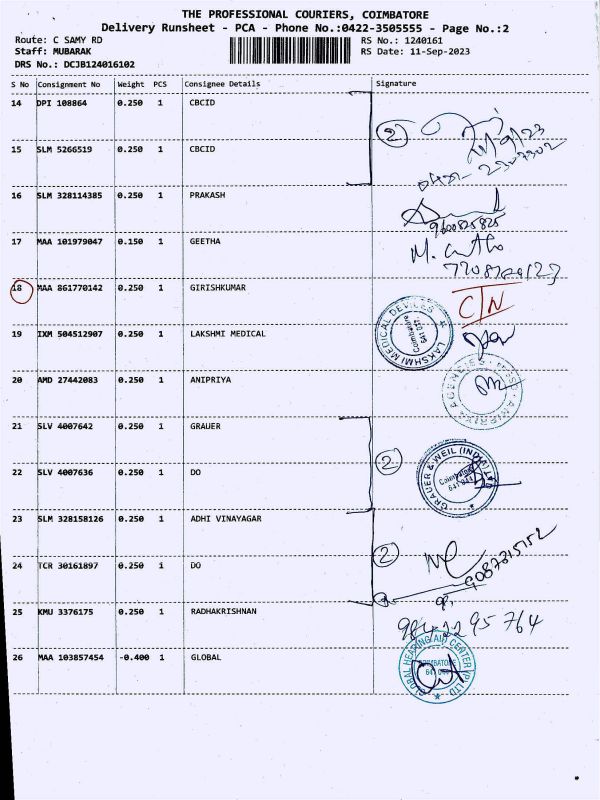 THE PROFESSIONAL COURIERS, COIMBATORE
Delivery Runsheet - PCA - Phone No.:0422-3505555 - Page No.:2
Route: C SAMY RD
RS No.: 1240161
Staff: MUBARAK
RS Date: 11-Sep-2023
DRS No.: DCJB124016102
S No Consignment No Weight PCS Consignee Details Signature
14 DPI 108864 0.250 1 CBCID
2
15 SLM 5266519 0.250 1 CBCID
16 SLM 328114385 0.250 1 PRAKASH
9600825825
17 MAA 101979047 0.150 1 GEETHA
18 MAA 861770142 0.250 1 GIRISHKUMAR
CTN
19 IXM 504512907 0.250 1 LAKSHMI MEDICAL
LAKSHMI MEDICAL DEVICES
Coimbatore
641 037.
20 AMD 27442083 0.250 1 ANIPRIYA
ANIPRIYA AGENCIES
21 SLV 4007642 0.250 1 GRAUER
2
GRAUER & WEIL (INDIA) LTD
Coimbatore
641 044
22 SLV 4007636 0.250 1 DO
23 SLM 328158126 0.250 1 ADHI VINAYAGAR
24 TCR 30161897 0.250 1 DO
2
9087815152
25 KMU 3376175 0.250 1 RADHAKRISHNAN
26 MAA 103857454 -0.400 1 GLOBAL
GLOBAL HEARING AID CENTER (P) LTD
COIMBATORE